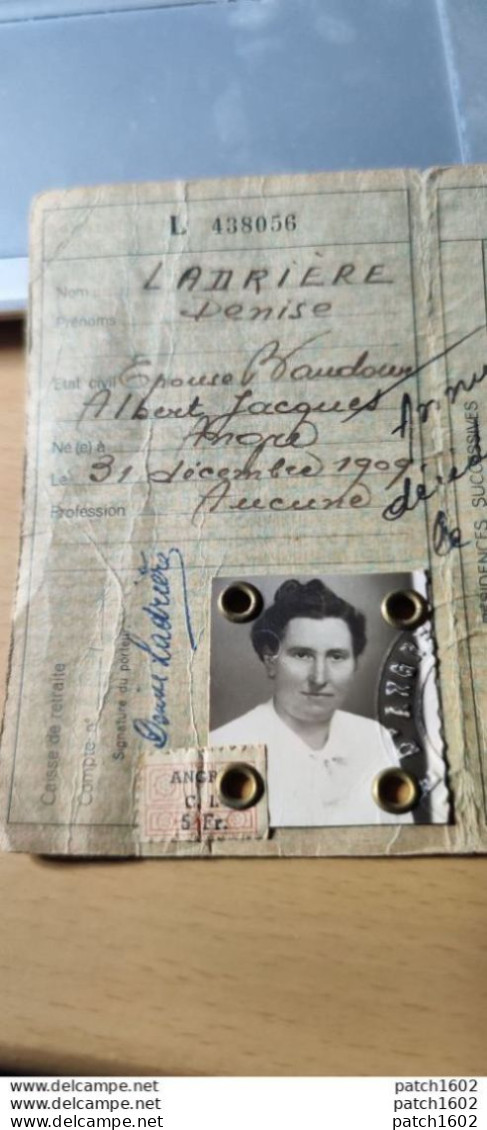 L 438056
Nom LADRIÈRE
Prénoms Denise
Etat civil Epouse Baudour
Albert Jacques
Né (e) à Angre
Le 31 décembre 1909.
Profession Aucune
RÉSIDENCES SUCCESSIVES
Caisse de retraite
Compte n°
Signature du porteur
Denise Ladrière
ANGRE
C. I.
5 Fr.
D'ANGRE
www.delcampe.net patch1602
www.delcampe.net patch1602
www.delcampe.net patch1602